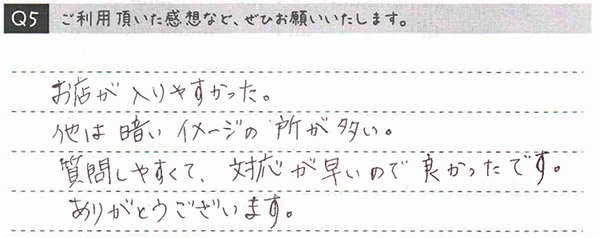 Q5 ご利用頂いた感想など、ぜひお願いいたします。
お店が入りやすかった。
他は暗いイメージの所が多い。
質問しやすくて、対応が早いので良かったです。
ありがとうございます。